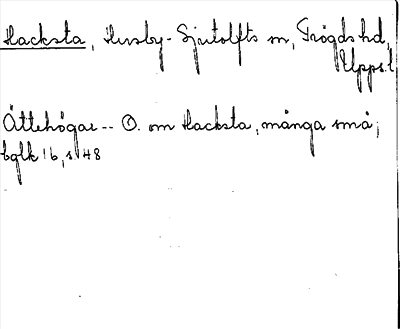 Hacksta, Husby-Sjutolfts sn, Trögds hd,
Upps. l.
Ättehögar -- O. om Hacksta, många små;
bglk 16, s. 48